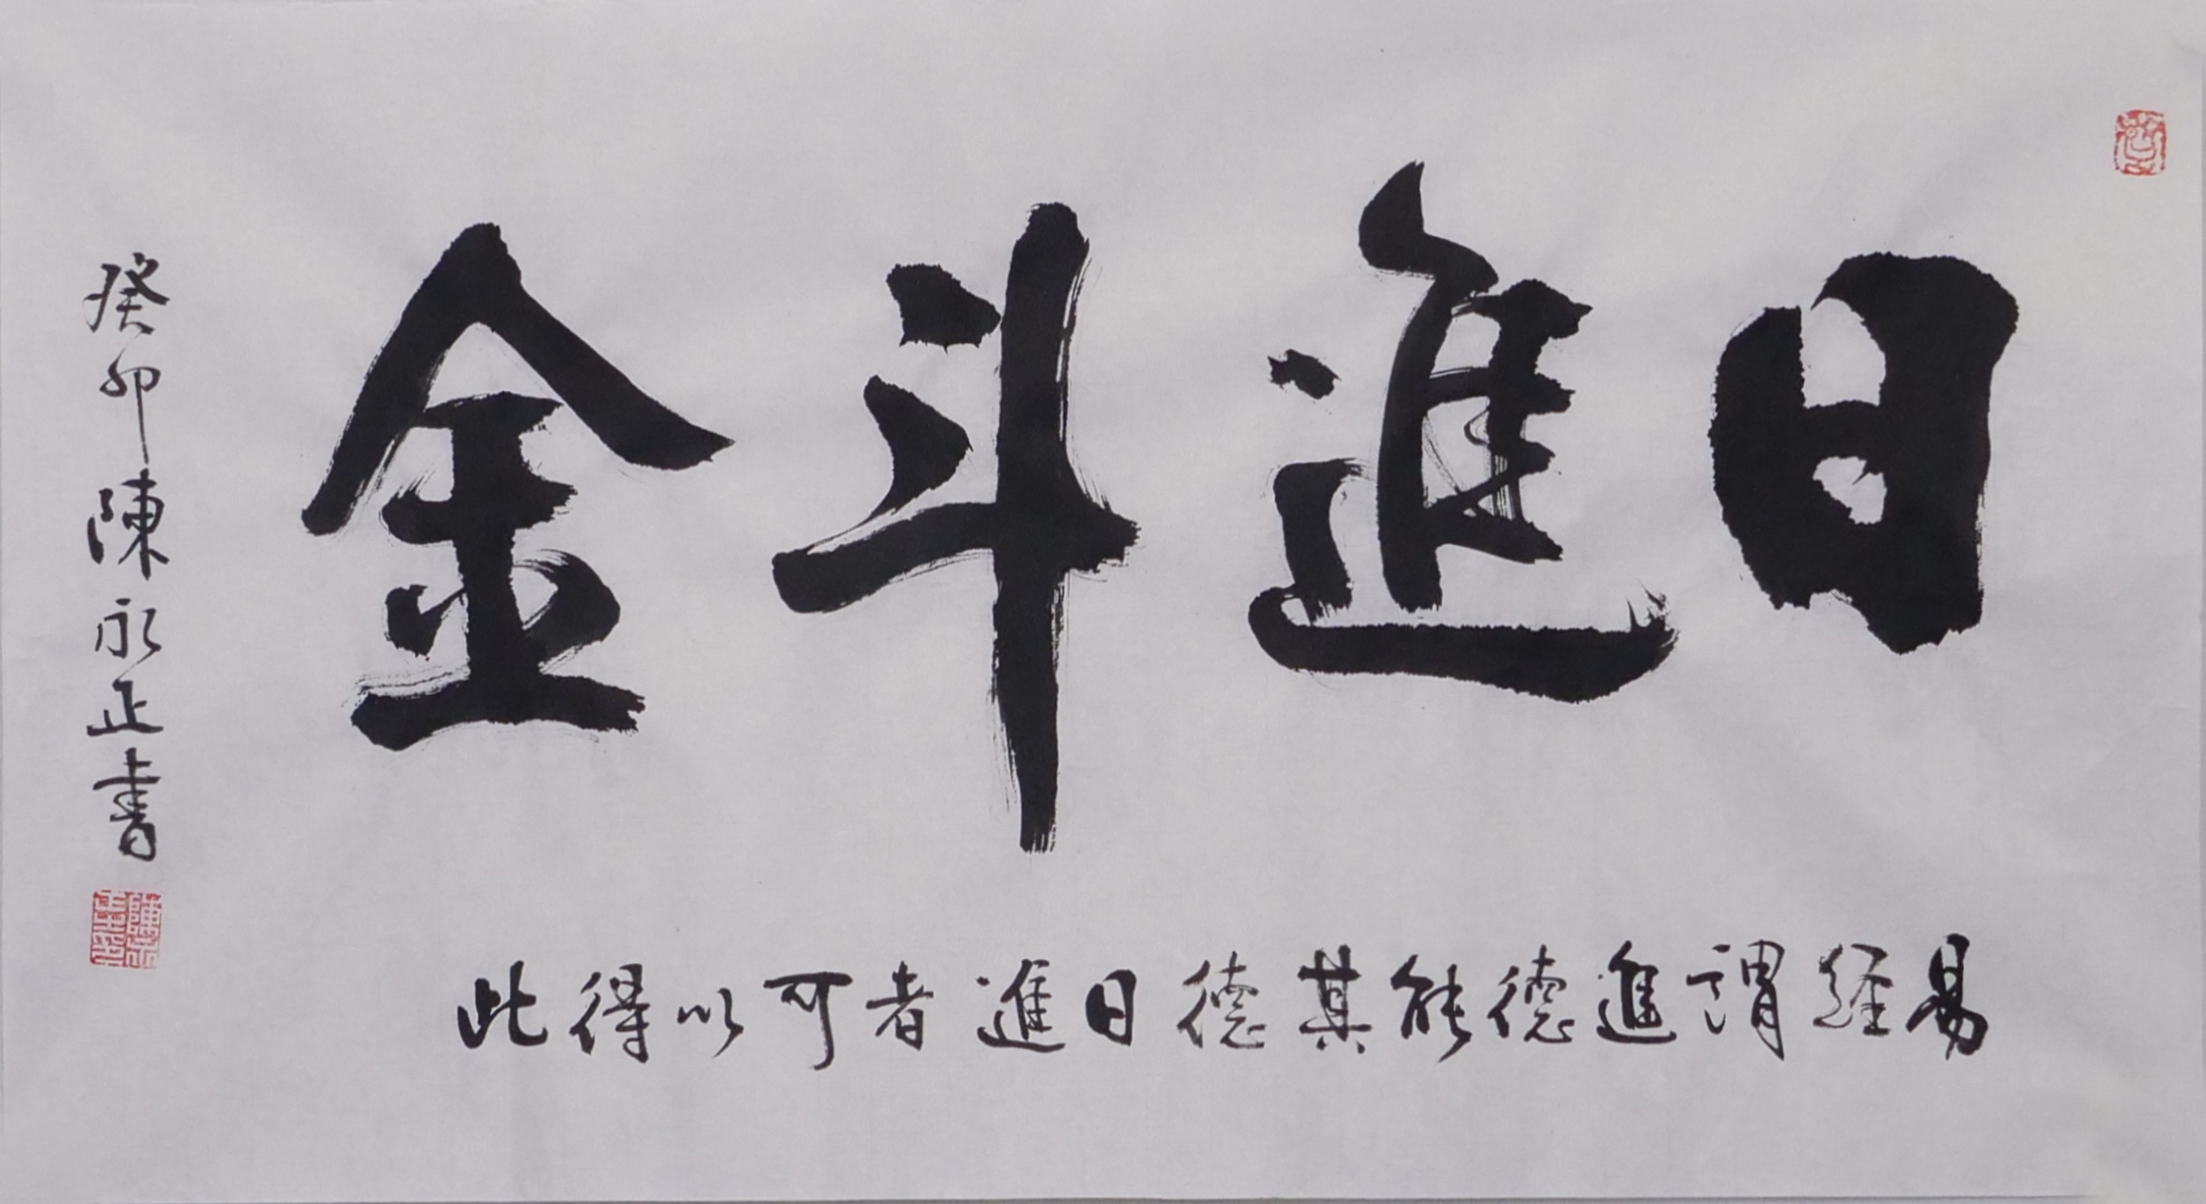 日進斗金
易經謂進德能其德日進者可以得此
癸卯陳永正書